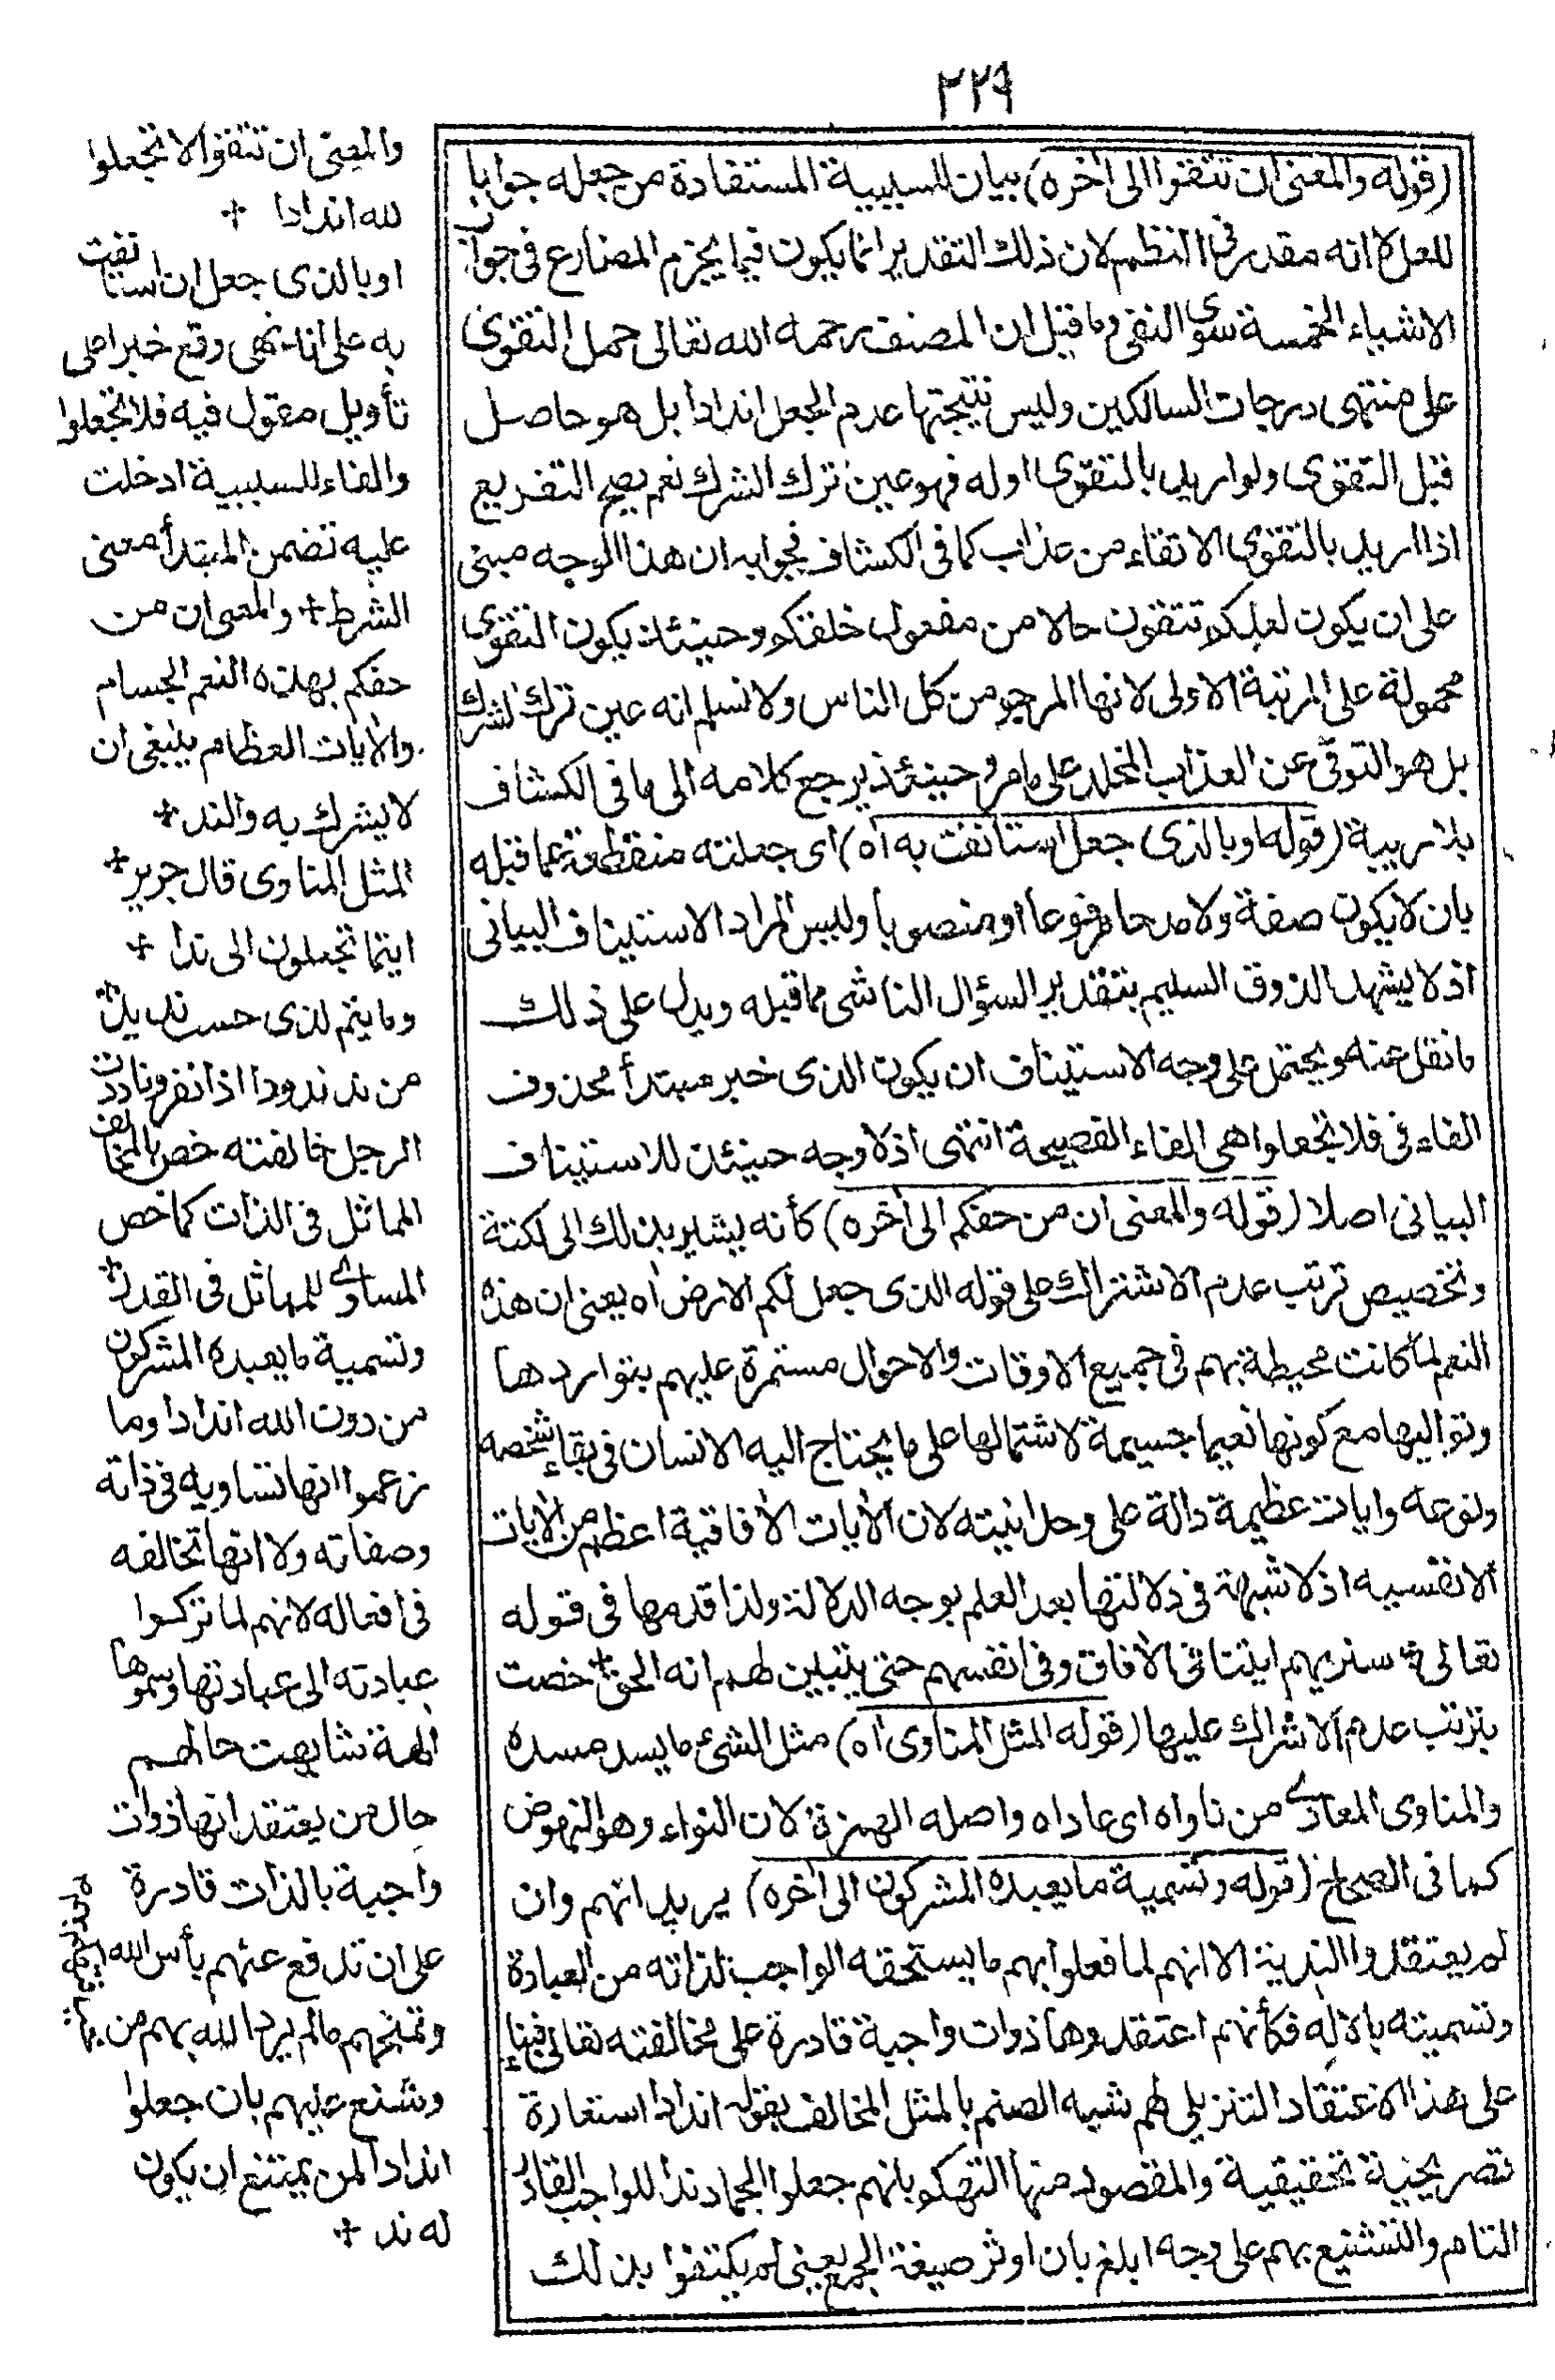 ٢٢٩
(قوله والمعنى ان تتقوا الى آخره) بيان للسببية المستفادة من جعله جوابا
للعل لا انه مقدر فى النظم لان ذلك التقدير انما يكون فيما يجزم المضارع فى جواب
الاشياء الخمسة سوى النفى وما قيل ان المصنف رحمه الله تعالى حمل التقوى
على منتهى درجات السالكين وليس نتيجتها عدم الجعل اندادا بل هو حاصل
قبل التقوى ولو اريد بالتقوى اوله فهو عين ترك الشرك نعم يصح التفريع
اذا اريد بالتقوى الاتقاء من عذاب كما فى الكشاف فجوابه ان هذا الوجه مبنى
على ان يكون لعلكم تتقون حالا من مفعول خلقكم وحينئذ يكون التقوى
محمولة على المرتبة الاولى لانها المرجو من كل الناس ولا نسلم انه عين ترك الشرك
بل هو التوقى عن العذاب المخلد على ما مر وحينئذ يرجع كلامه الى ما فى الكشاف
بلا ريبة (قوله او بالذى جعل استانفت به اه) اى جعلته منقطعة عما قبله
بان لا يكون صفة ولا مدحا مرفوعا او منصوبا وليس المراد الاستيناف البيانى
اذ لا يشهد الذوق السليم بتقدير السؤال الناشى مما قبله ويدل على ذلك
ما نقل عنه ويحتمل على وجه الاستيناف ان يكون الذى خبر مبتدأ محذوف
الفاء فى فلا تجعلوا هى الفاء الفصيحة انتهى اذ لا وجه حينئذ للاستيناف
البيانى اصلا (قوله والمعنى ان من حفكم الى آخره) كأنه يشير بذلك الى نكتة
وتخصيص ترتب عدم الاشتراك على قوله الذى جعل لكم الارض اه يعنى ان هذه
النعم لما كانت محيطة بهم فى جميع الاوقات والاحوال مستمرة عليهم بتواردها
وتواليها مع كونها نعيما جسيمة لاشتمالها على ما يحتاج اليه الانسان فى بقاء شخصه
ونوعه وايات عظيمة دالة على وحدانيته لان الآيات الآفاقية اعظم من الآيات
الانفسيه اذ لا شبهة فى دلالتها بعد العلم بوجه الدلالة ولذا قدمها فى قوله
تعالى سنريهم ايتنا فى الآفاق وفى انفسهم حتى يتبين لهم انه الحق خصت
بترتب عدم الاشراك عليها (قوله المثل المناوى اه) مثل الشئ ما يسد مسده
والمناوى المعادى من ناواه اى عاداه واصله الهمزة لان النواء وهو النهوض
كما فى الصحاح (قوله وتسمية ما يعبده المشركون الى آخره) يريد انهم وان
لم يعتقدوا الندية الا انهم لما فعلوا بهم ما يستحقه الواجب لذاته من العبادة
وتسميته بالآله فكأنهم اعتقدوها ذوات واجبة قادرة على مخالفته تعالى فبناء
على هذا الاعتقاد التنزيلى لهم شبه الصنم بالمثل المخالف بقوله اندادا استعارة
تصريحية تحقيقية والمقصود منها التهكم بانهم جعلوا الجماد ندا للواجب القادر
التام والتشنيع بهم على وجه ابلغ بان اوثر صيغة الجمع يعنى لم يكتفوا بذلك
والمعنى ان تتقوا لا تجعلوا
لله اندادا +
او بالذى جعل ان استانفت
به على انه نهى وقع خبرا على
تأويل مقول فيه فلا تجعلوا
والفاء للسببية ادخلت
عليه تضمن المبتدأ معنى
الشرط + والمعنى ان من
حفكم بهذه النعم الجسام
والآيات العظام ينبغى ان
لا يشرك به والند +
المثل المناوى قال جرير +
ايتما تجعلون الى ندا +
وما يتم لذى حسب نديد +
من ند ندودا اذا نفر وناددت
الرجل خالفته خص بالمخالف
المماثل فى الذات كما خص
المساوى للمماثل فى القدر +
وتسمية ما يعبده المشركون
من دون الله اندادا وما
زعموا انها تساويه فى ذاته
وصفاته ولا انها تخالفه
فى افعاله لانهم لما تركوا
عبادته الى عبادتها وسموها
الهة شابهت حالهم
حال من يعتقد انها ذوات
واجبة بالذات قادرة
على ان تدفع عنهم بأس الله
وتمنحهم ما لم يرد الله بهم من
وشنع عليهم بان جعلوا
اندادا لمن يمتنع ان يكون
له ند +